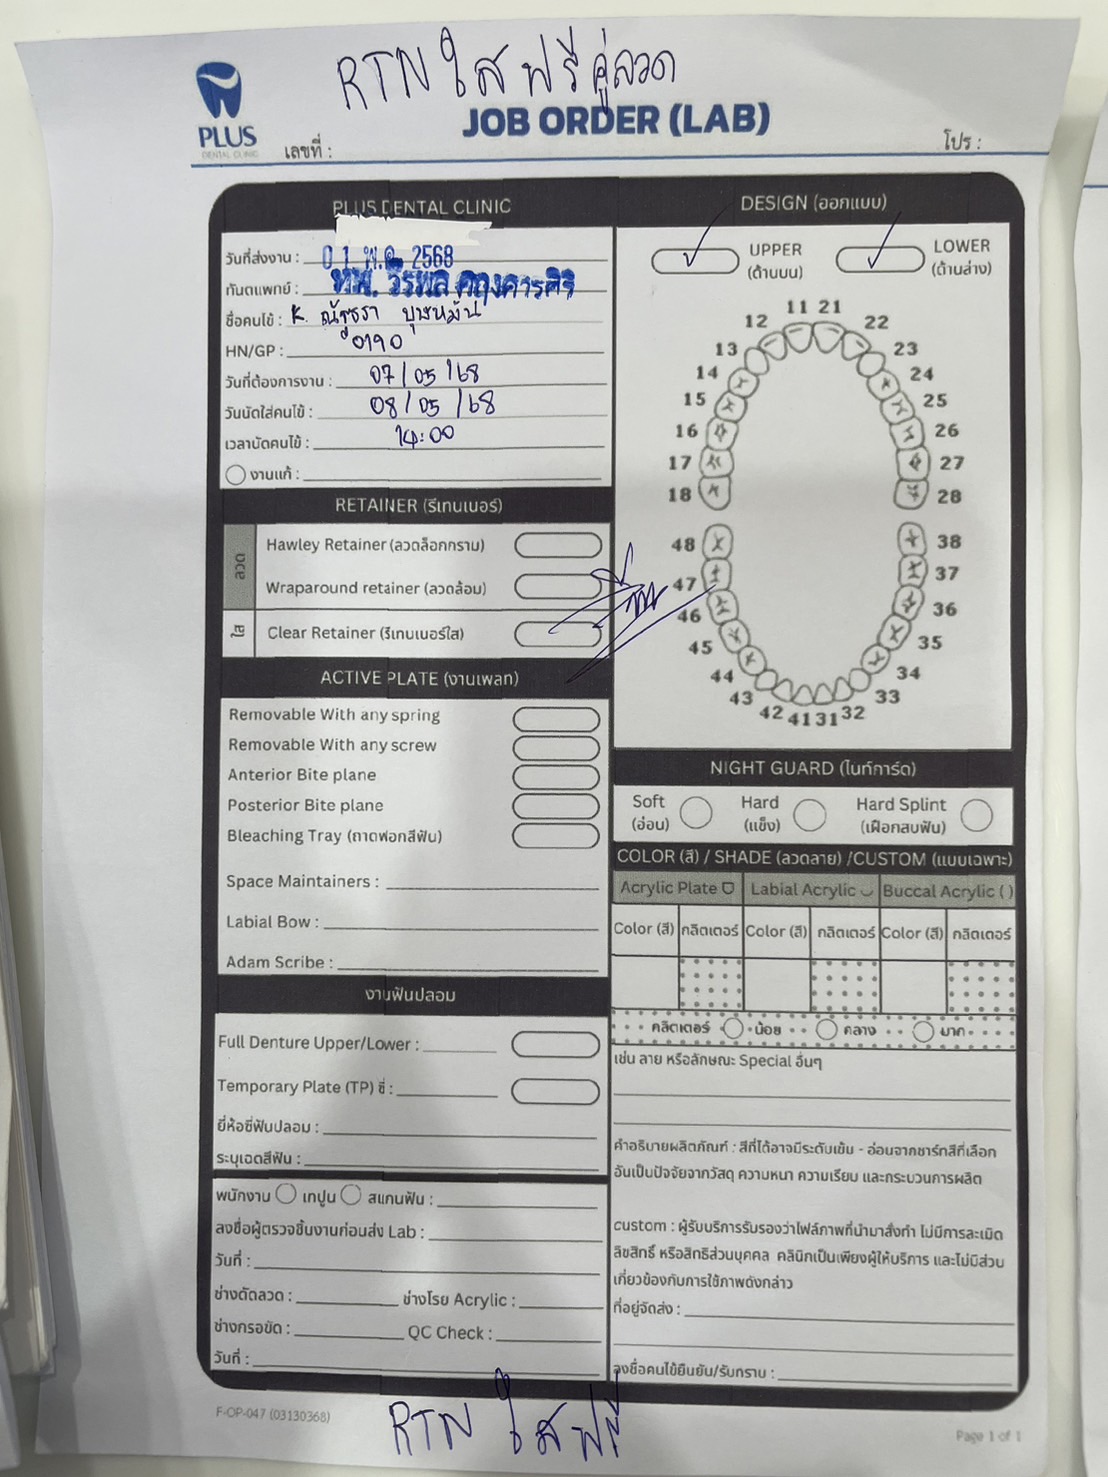 RTN ใส ฟรี คู่ลวด
PLUS
DENTAL CLINIC
JOB ORDER (LAB)
เลขที่ :
โปร :
PLUS DENTAL CLINIC
วันที่ส่งงาน : 0 1 พ.ค. 2568
ทันตแพทย์ : ทพ. วีรพล
ชื่อคนไข้ : K.
HN/GP : 0190
วันที่ต้องการงาน : 07/05/68
วันนัดใส่คนไข้ : 08/05/68
เวลานัดคนไข้ : 14:00
งานแก้ :
RETAINER (รีเทนเนอร์)
ลวด
Hawley Retainer (ลวดล็อกกราม)
Wraparound retainer (ลวดล้อม)
ใส
Clear Retainer (รีเทนเนอร์ใส)
ฟรี
ACTIVE PLATE (งานเพลท)
Removable With any spring
Removable With any screw
Anterior Bite plane
Posterior Bite plane
Bleaching Tray (ถาดฟอกสีฟัน)
Space Maintainers :
Labial Bow :
Adam Scribe :
งานฟันปลอม
Full Denture Upper/Lower :
Temporary Plate (TP) ซี่ :
ยี่ห้อซี่ฟันปลอม :
ระบุเฉดสีฟัน :
พนักงาน เทปูน สแกนฟัน :
ลงชื่อผู้ตรวจชิ้นงานก่อนส่ง Lab :
วันที่ :
ช่างดัดลวด : ช่างโรย Acrylic :
ช่างกรอขัด : QC Check :
วันที่ :
DESIGN (ออกแบบ)
UPPER
(ด้านบน)
LOWER
(ด้านล่าง)
11 21
12 22
13 23
14 24
15 25
16 26
17 27
18 28
48 38
47 37
46 36
45 35
44 34
43 33
42 41 31 32
NIGHT GUARD (ไนท์การ์ด)
Soft
(อ่อน)
Hard
(แข็ง)
Hard Splint
(เฝือกสบฟัน)
COLOR (สี) / SHADE (ลวดลาย) /CUSTOM (แบบเฉพาะ)
Acrylic Plate Labial Acrylic Buccal Acrylic ( )
Color (สี) กลิตเตอร์ Color (สี) กลิตเตอร์ Color (สี) กลิตเตอร์
กลิตเตอร์ น้อย กลาง มาก
เช่น ลาย หรือลักษณะ Special อื่นๆ
คำอธิบายผลิตภัณฑ์ : สีที่ได้อาจมีระดับเข้ม - อ่อนจากชาร์ทสีที่เลือก
อันเป็นปัจจัยจากวัสดุ ความหนา ความเรียบ และกระบวนการผลิต
custom : ผู้รับบริการรับรองว่าไฟล์ภาพที่นำมาสั่งทำ ไม่มีการละเมิด
ลิขสิทธิ์ หรือสิทธิส่วนบุคคล คลินิกเป็นเพียงผู้ให้บริการ และไม่มีส่วน
เกี่ยวข้องกับการใช้ภาพดังกล่าว
ที่อยู่จัดส่ง :
ลงชื่อคนไข้ยืนยัน/รับทราบ :
F-OP-047 (03130368)
Page 1 of 1
RTN ใส ฟรี